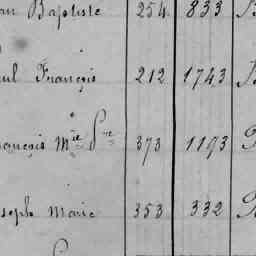 an Baptiste 254 833 B
ul François 212 1743 B
ançois Mie Pre 373 1193
seph Marie 353 332